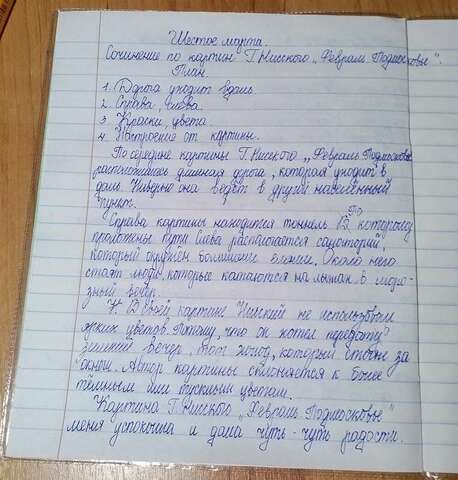 Шестое марта.
Сочинение по картин Г.Нисского „Февраль Подмосковье".
План.
1. Дорога уходит вдаль.
2. Справа, слева.
3. Краски, цвета
4. Настроение от картины.
По середине картины Г.Нисского „Февраль Подмосковье"
расположилась длинная дорога, которая уходит в
даль. Наверно она ведёт в другой населённый
пункт.
Справа картины находится тоннель По которому
проложены пути Слева располагается санаторий,
который окружён большими ёлками. Около него
стоят люди, которые катаются на лыжах в моро-
зный вечер.
В своей картине Нисский не использовал
ярких цветов. Потому, что он хотел передать
зимний вечер, тот холод, который стоит за
окном. Автор картины склоняется к более
тёмным или тусклым цветам.
Картина Г.Нисского „Февраль Подмосковье"
меня успокоила и дала чуть-чуть радости.